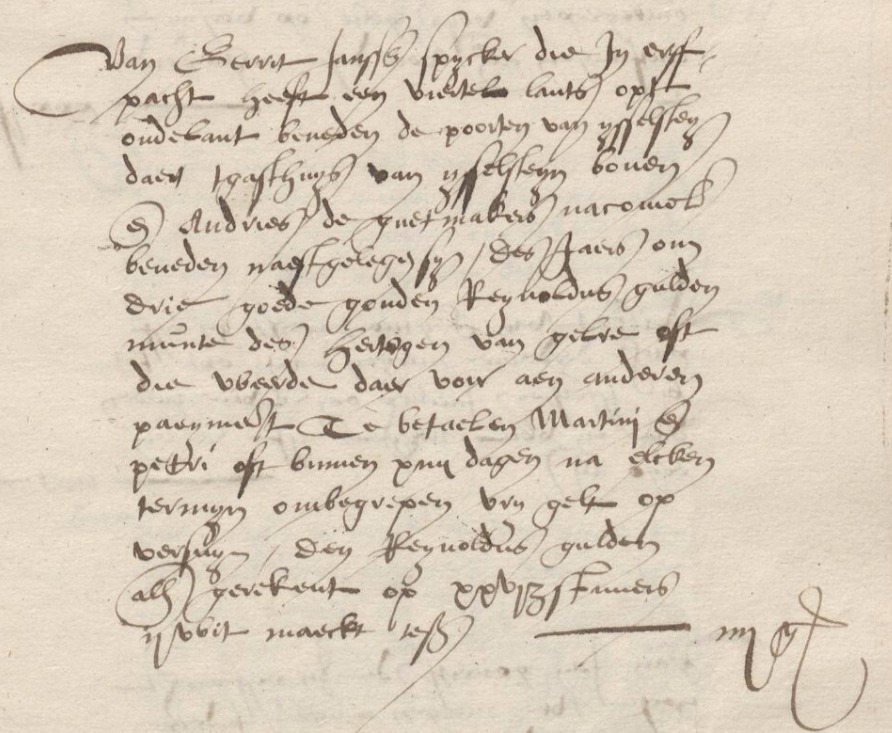 Van Gerrit Janss spycker die In erff
pacht heeft een viertel lants opt
oudelant beneden de poorten van ysselsteyn
daer tgasthuys van ysselsteyn boven
en Andries de guetmakers nacomel
beneden naestgelegen syn / des Jaers om
drie goede gouden Reynoldus gulden
munte des hertogen van gelre oft
die weerde daer voir aen anderen
payment Te betaelen Martini en
petri oft binnen xiiii dagen na elcken
termyn ombegrepen vry gelt op
versuym / den Reynoldus gulden
alhier gerekent op stuvers
maeckt tesamen iiii g